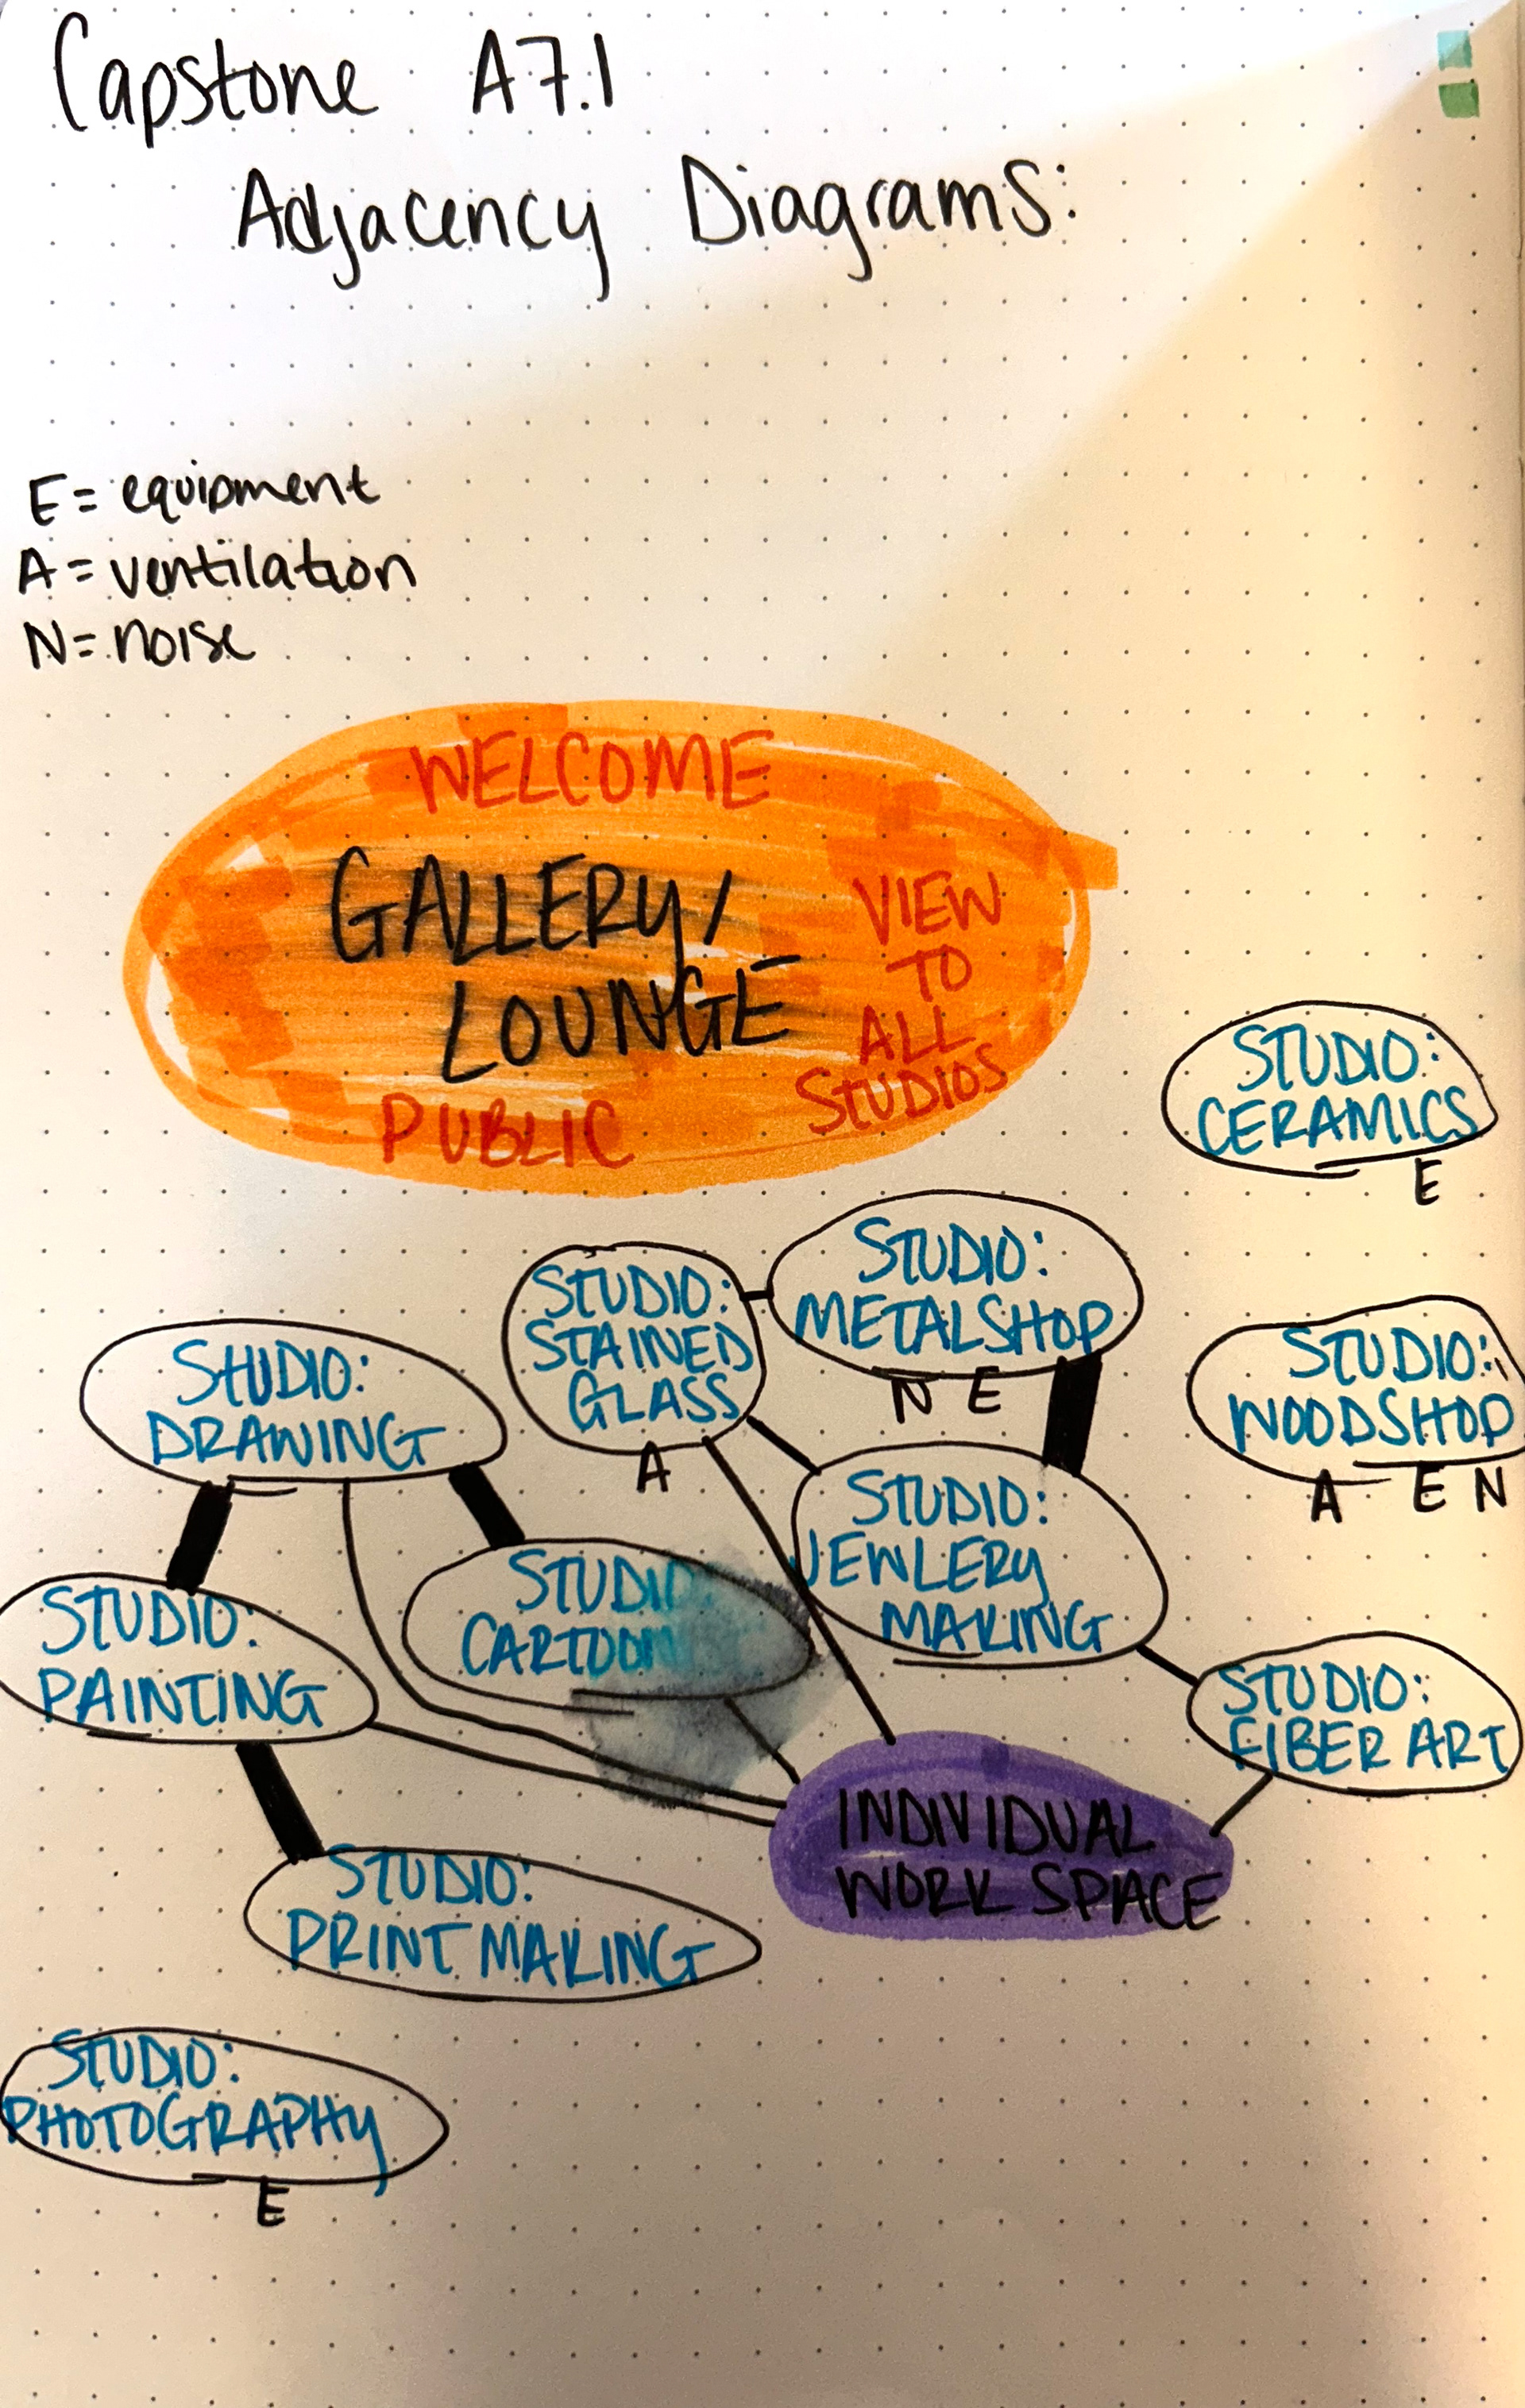 Capstone A7.1
Adjacency Diagrams:
E = equipment
A = ventilation
N = noise
WELCOME
GALLERY/
LOUNGE
VIEW
TO
ALL
STUDIOS
PUBLIC
STUDIO:
CERAMICS
E
STUDIO:
METALSHOP
N E
STUDIO:
STAINED
GLASS
A
STUDIO:
WOODSHOP
A E N
STUDIO:
DRAWING
STUDIO:
JEWLERY
MAKING
STUDIO
CARTOON
STUDIO:
PAINTING
STUDIO:
FIBER ART
INDIVIDUAL
WORK SPACE
STUDIO:
PRINT MAKING
STUDIO:
PHOTOGRAPHY
E